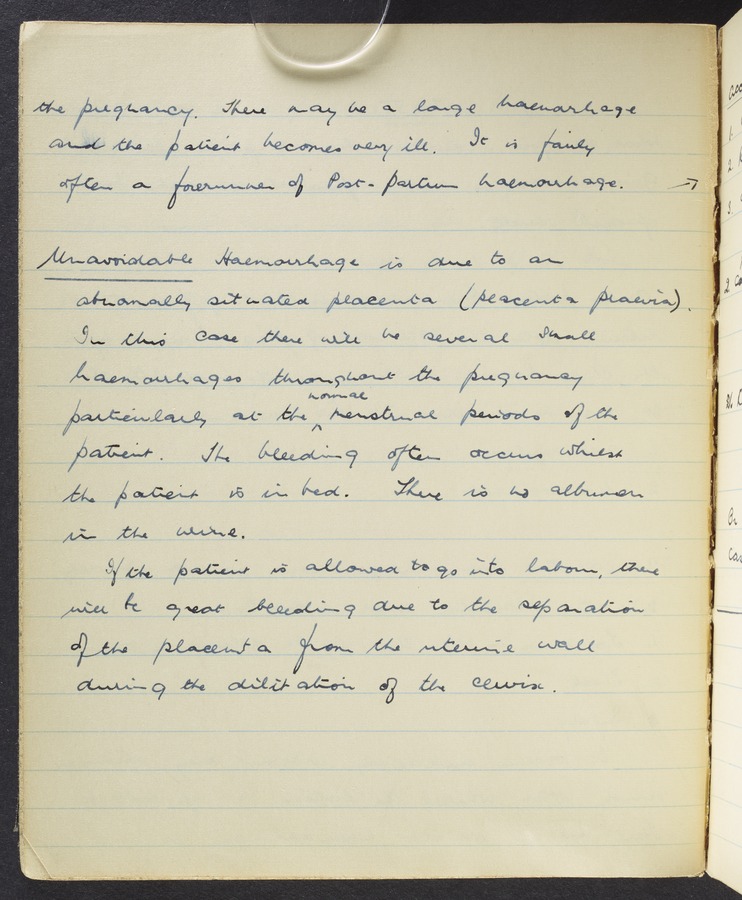 the pregnancy. There may be a large haemorrhage
and the patient becomes very ill. It is fairly
often a forerunner of Post-Partum haemorrhage. →
Unavoidable Haemorrhage is due to an
abnormally situated placenta (placenta praevia).
In this case there will be several small
haemorrhages throughout the pregnancy
particularly at the normal menstrual periods of the
patient. The bleeding often occurs whilst
the patient is in bed. There is no albumen
in the urine.
If the patient is allowed to go into labour, there
will be great bleeding due to the separation
of the placenta from the uterine wall
during the dilitation of the cervix.